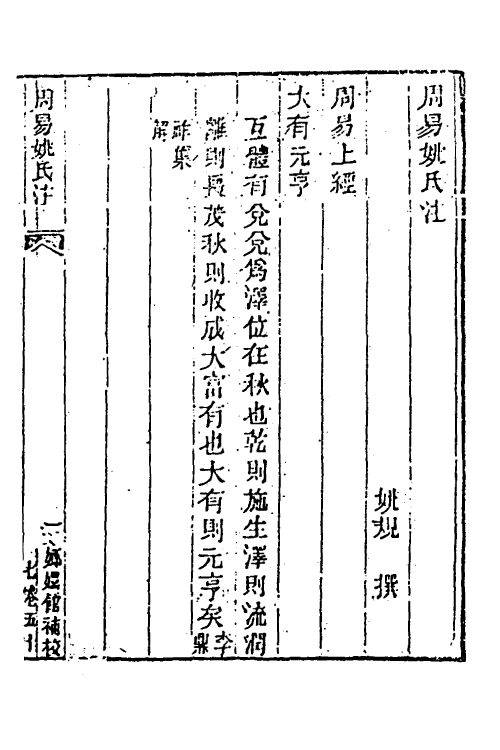 周易姚氏注
姚規　撰
周易上經
大有元亨
互體有兌兌爲澤位在秋也乾則施生澤則流潤
離則長茂秋則收成大富有也大有則元亨矣李鼎
祚集解
周易姚氏注
一
嫏嬛館補校
七卷五十